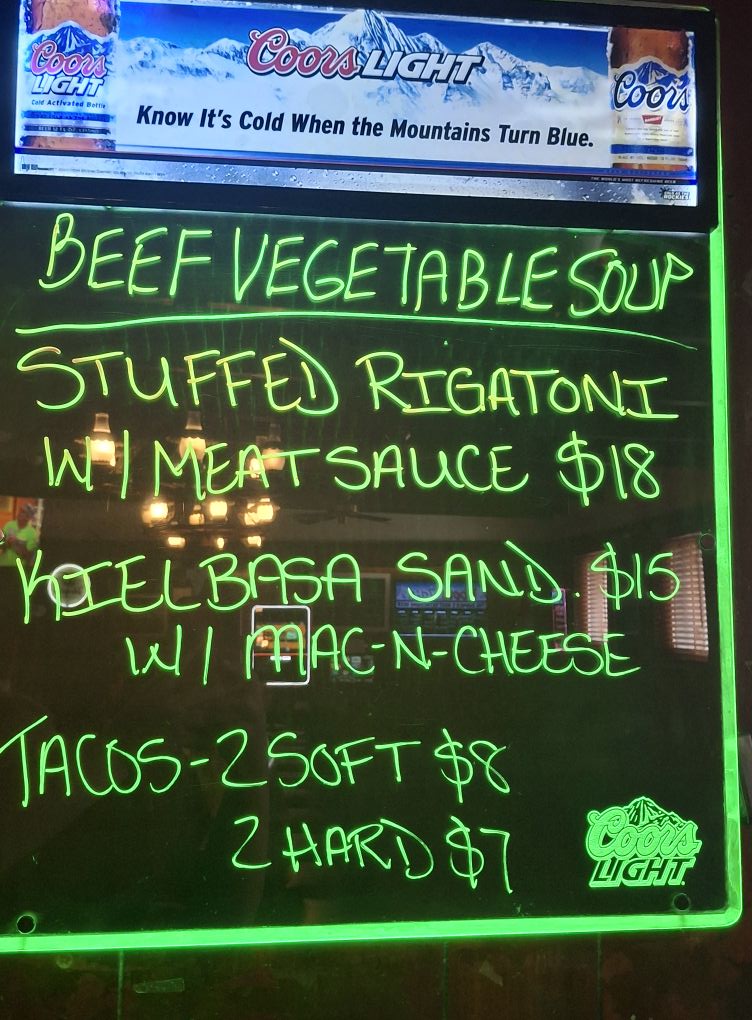 Coors LIGHT
Coors
LIGHT
Cold Activated Bottle
Coors
Know It's Cold When the Mountains Turn Blue.
THE WORLD'S MOST REFRESHING BEER
BEEF VEGETABLE SOUP
STUFFED RIGATONI
W/ MEAT SAUCE $18
KIELBASA SAND. $15
W/ MAC-N-CHEESE
TACOS-2 SOFT $8
2 HARD $7
Coors
LIGHT